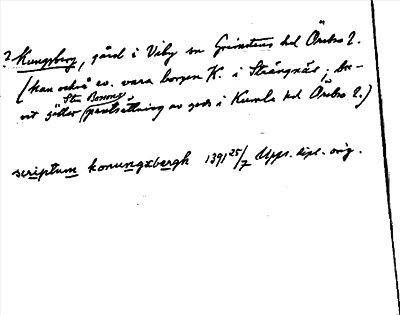 ? Kungsberg, gård i Viby sn Grimstens hd Örebro l.
(kan också ev. vara borgen K. i Strängnäs; bre-
Sten Bossons
vet gäller pantsättning av gods i Kumla hd Örebro l.)
scriptum konungxbergh 1391 25/7 Upps. dipl. orig.